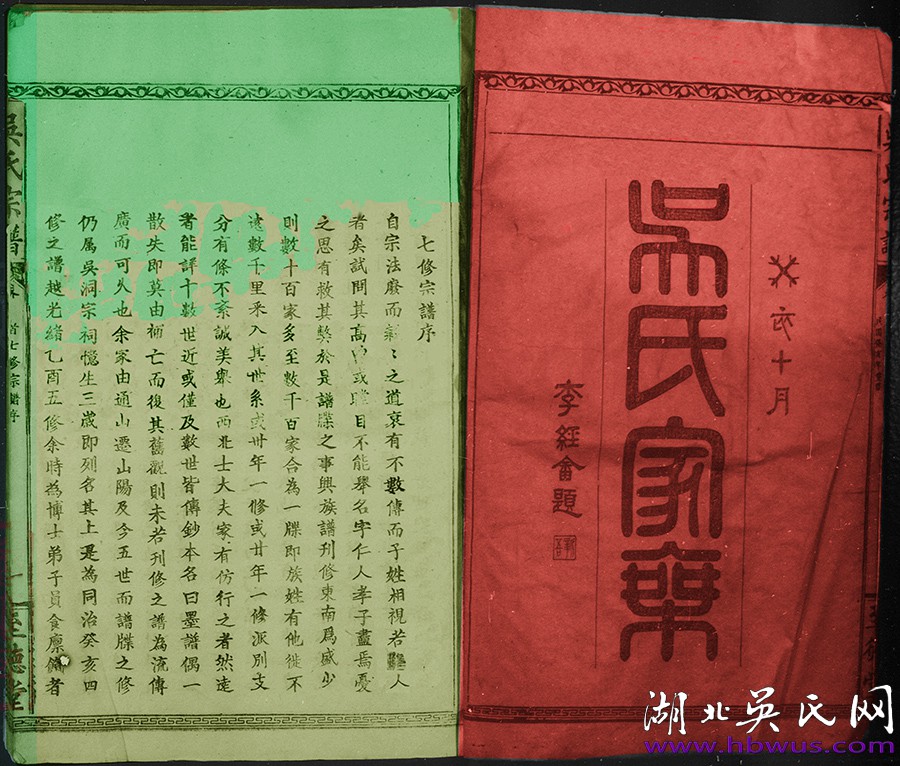 癸亥十月
吳氏家乘
李經畬題
七修宗譜序
自宗法廢而親親之道衰有不數傳而子姓相視若路人
者矣試問其高曾或瞠目不能舉名字仁人孝子盡焉憂
之思有救其弊於是譜牒之事興族譜刊修東南爲盛少
則數十百家多至數千百家合為一牒即族姓有他徙不
遠數千里釆入其世系或卅年一修或廿年一修派別支
分有條不紊誠美舉也西北士大夫家有仿行之者然遠
者能詳十數世近或僅及數世皆傳鈔本名曰墨譜偶一
散失即莫由補亡而復其舊觀則未若刊修之譜為流傳
廣而可久也余家由通山遷山陽及今五世而譜牒之修
仍属吳洞宗祠憶生三歲即列名其上是為同治癸亥四
修之譜越光緒乙酉五修余時為博士弟子員食廩餼者
吳氏宗譜
首七修宗譜序
一
至德堂
湖北吴氏网
www.hbwus.com